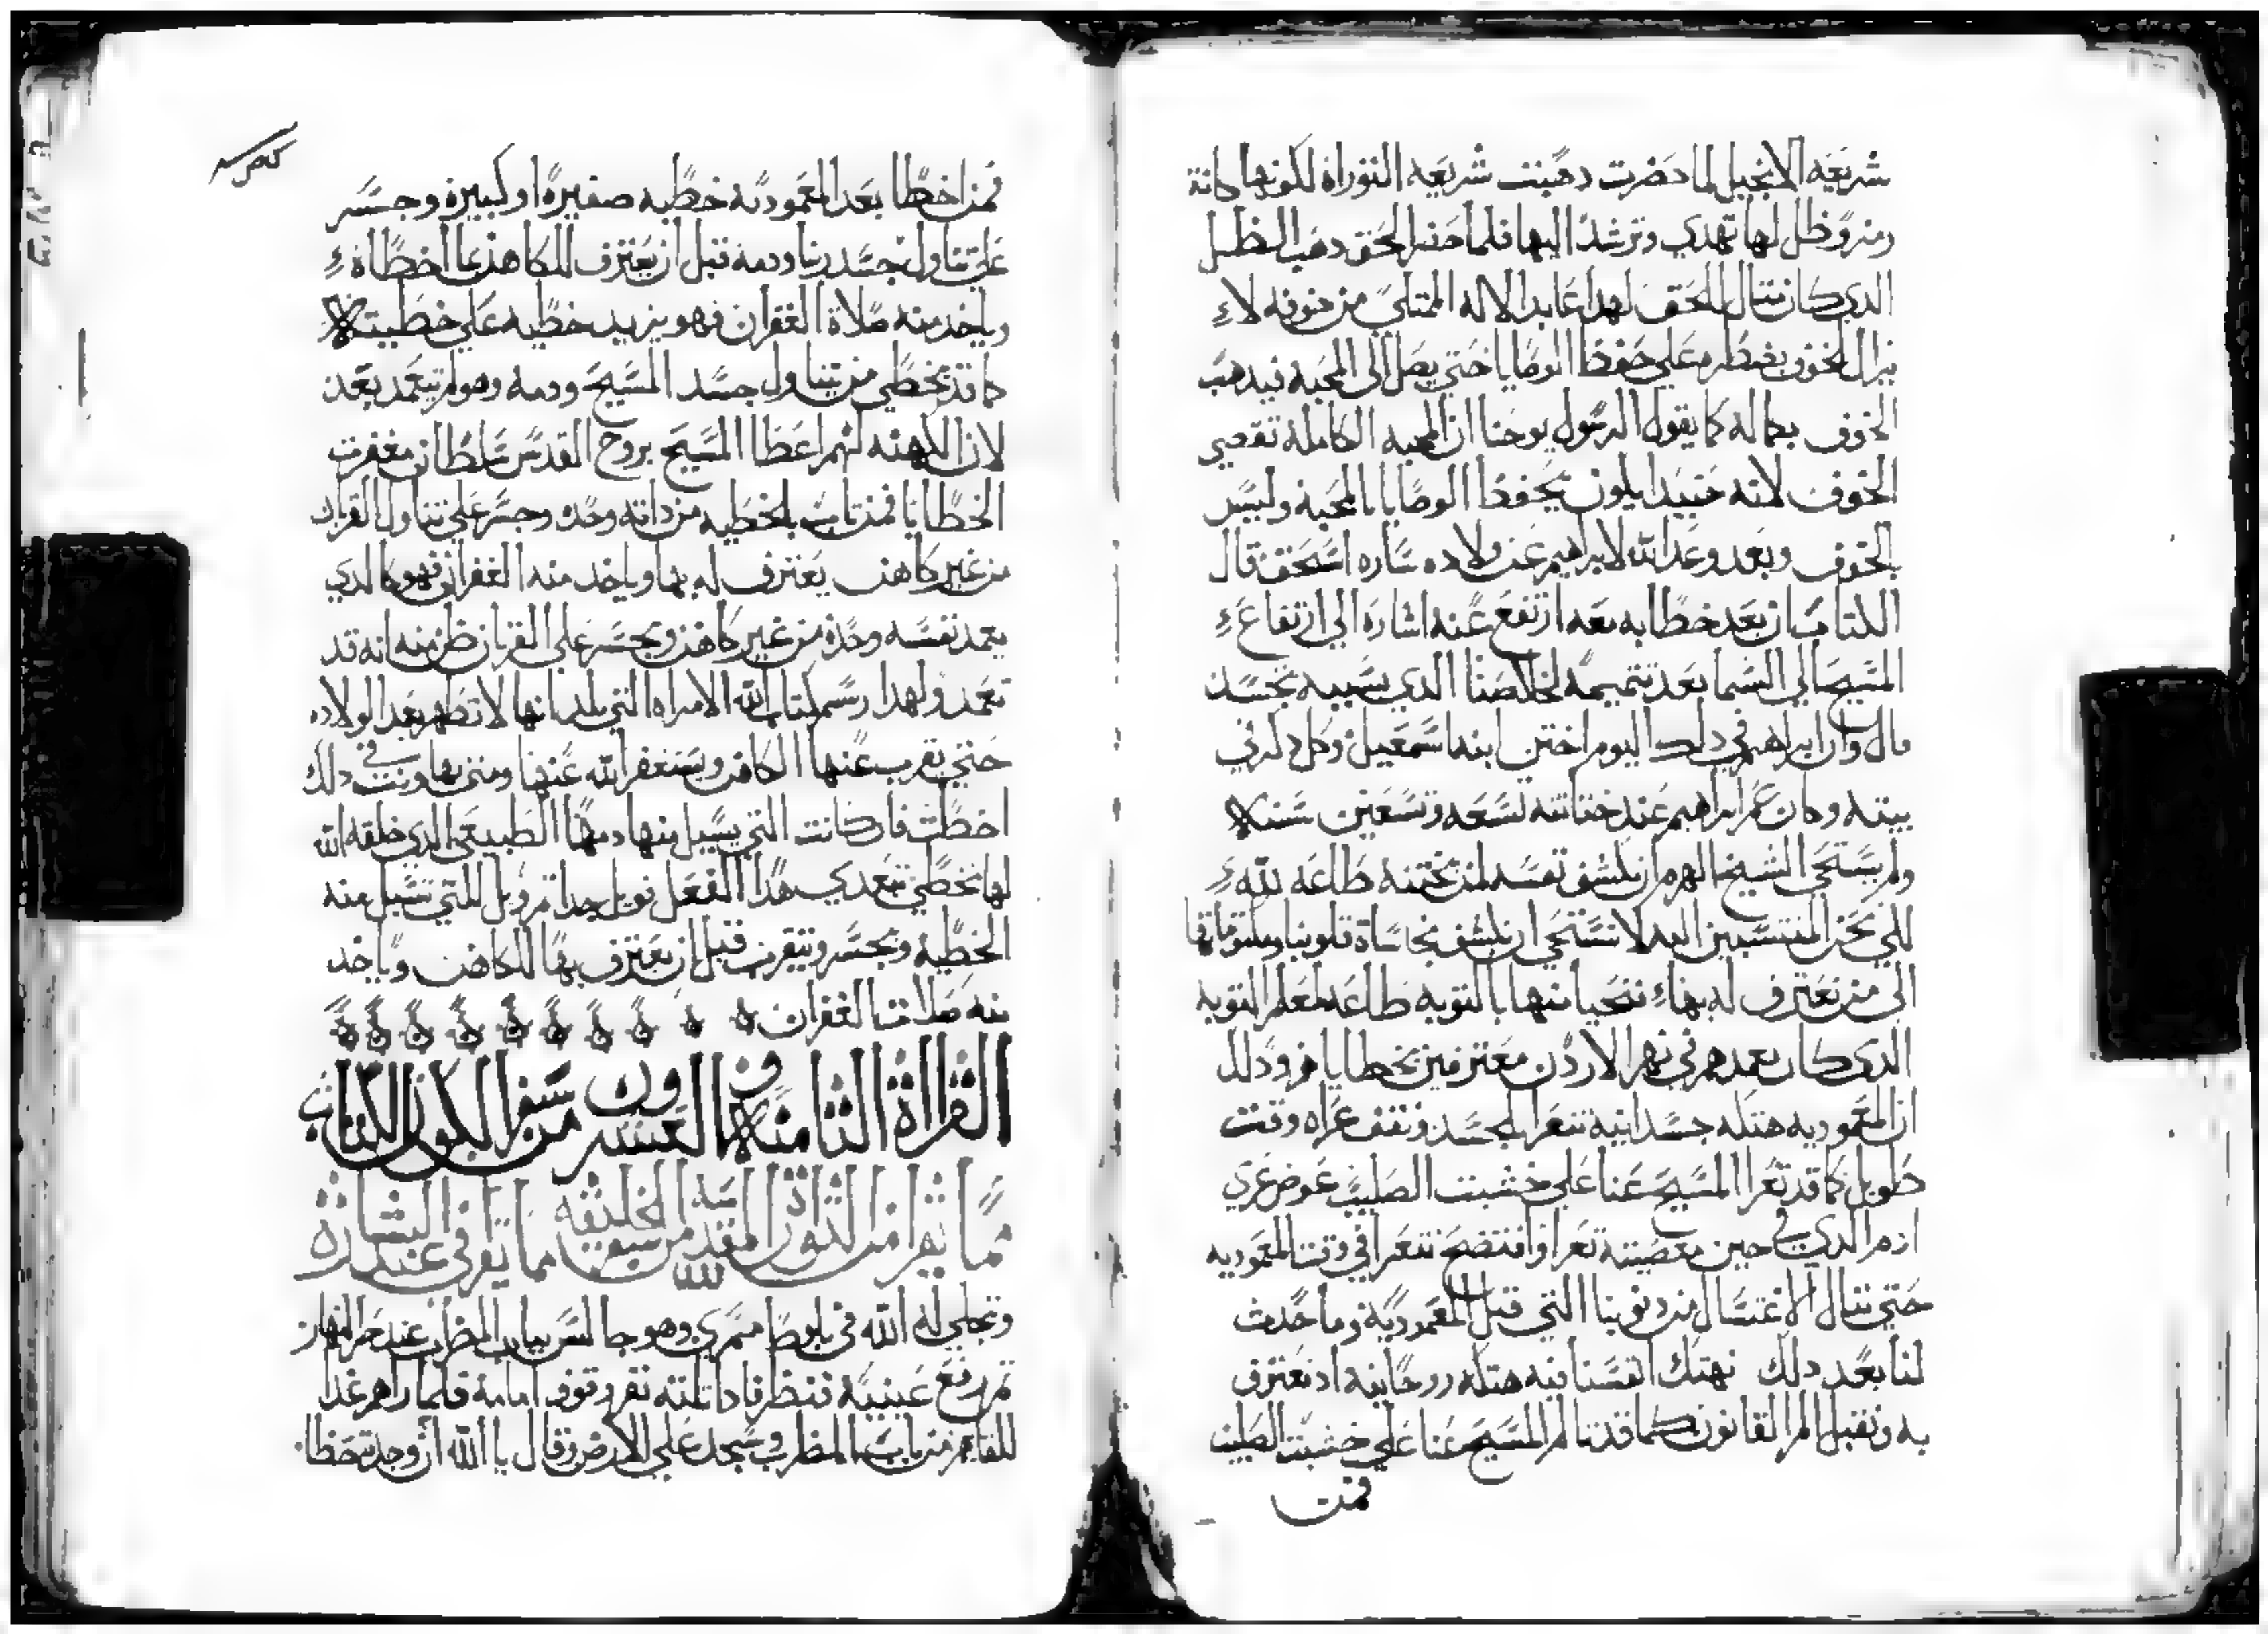 شريعه الانجيل لما حضرت دهبت شريعه التوراه لكونها كانة
رمز وظل لها تهدي وترشد اليها فلما حضر الحق دهب الظل
الدي كان مثال للحق لهدا عابد الاله الممتلي من خوفه لا
يزال الخوف يضطره علي حفظ الوصايا حتي يصل الي المحبه فيدهب
الخوف بكماله كما يقول الرسول يوحنا ان المحبه الكامله تقصي
الخوف لانه حينيدا يكون يحفظ الوصايا بالمحبه وليس
بالخوف وبعد وعد الله لابراهيم عن ولاده ساره اسحق قال
الكتاب ان بعد خطابه معه ارتفع عنه اشاره الي ارتفاع
المسيح الي السما بعد تتميمه لخلاصنا الدي بسببه تجسد
قال وان ابراهيم في دلك اليوم اختن ابنه اسمعيل وكل دكر في
بيته وكان عمر ابراهيم عند ختانته تسعه وتسعين سنه
ولم يستحي الشيخ الهرم ان يكشف نفسه لمن يختنه طاعه لله
لكي نحن المنتسبين اليه لا نستحي ان نكشف نجاساة قلوبنا
الي من نعترف له بها نتحيا منها بالتوبه طاعه لمعلم التوبه
الدي كان يعمدهم في نهر الاردن معترفين بخطاياهم ودلك
ان المعموديه هتكه جسدانيه تتعرا الجسد وتقف عراه وقت
طويل كما قد تعرا المسيح عنا علي خشبت الصليب عوض عري
ادم الدي في حين معصيته تعرا وافتضح نتعرا في وقت المعموديه
حتي ننال الاغتسال من دنوبنا التي قبل المعموديه وما حدث
لنا بعد دلك نهتك انفسنا فيه هتكه روحانيه اد نعترف
به ونقبل الم القانون كما قد تالم المسيح عنا علي خشبت الصليب
فمن
فمن اخطا بعد المعموديه خطيه صغيره او كبيره وجسر
علي تناول جسد ربنا ودمه قبل ان يعترف للكاهن بما اخطاه
وياخد منه صلاة الغفران فهو يزيد خطيه علي خطيته
كما قد يخطي من يتناول جسد المسيح ودمه وهو لم يتعمد بعد
لان الكهنه لهم اعطا المسيح بروح القدس سلطان مغفرت
الخطايا فمن تاب بالخطيه من داته وحده وجسر علي تناول القربان
من غير كاهن يعترف له بها وياخد منه الغفران فهو كالدي
يعمد نفسه وحده من غير كاهن ويجسر علي القربان ظن منه انه قد
تعمد ولهدا رسم كتاب الله الامراه التي تلد انها لا تطهر بعد الولاده
حتي يقرب عنها الكاهن ويستغفر الله عنها ومتي تهاونت في دلك
اخطت فان كانت التي يسيل منها دمها الطبيعي الدي خلقه الله
لها تخطي بتعدي هدا الفعل فويل جدا تم ويل للتي تسيل منه
الخطيه ويجسر ويتقرب قبل ان يعترف بها للكاهن وياخد
منه صلات الغفران
القراة الثامنه والعشرون من سفر الكون الكتاب
مما يقرا من التوراة المقدسه من سفر الخليقه مما يقرا في عيد البشارة
وتجلي له الله في بلوطا ممري وهو جالس بباب المضرب عند حر النهار
تم رفع عينيه فنظر فادا تلته نفر وقوف امامه فلما راهم غدا
للقاهم من باب المضرب وسجد علي الارض وقال يا الله ان وجدت حظا